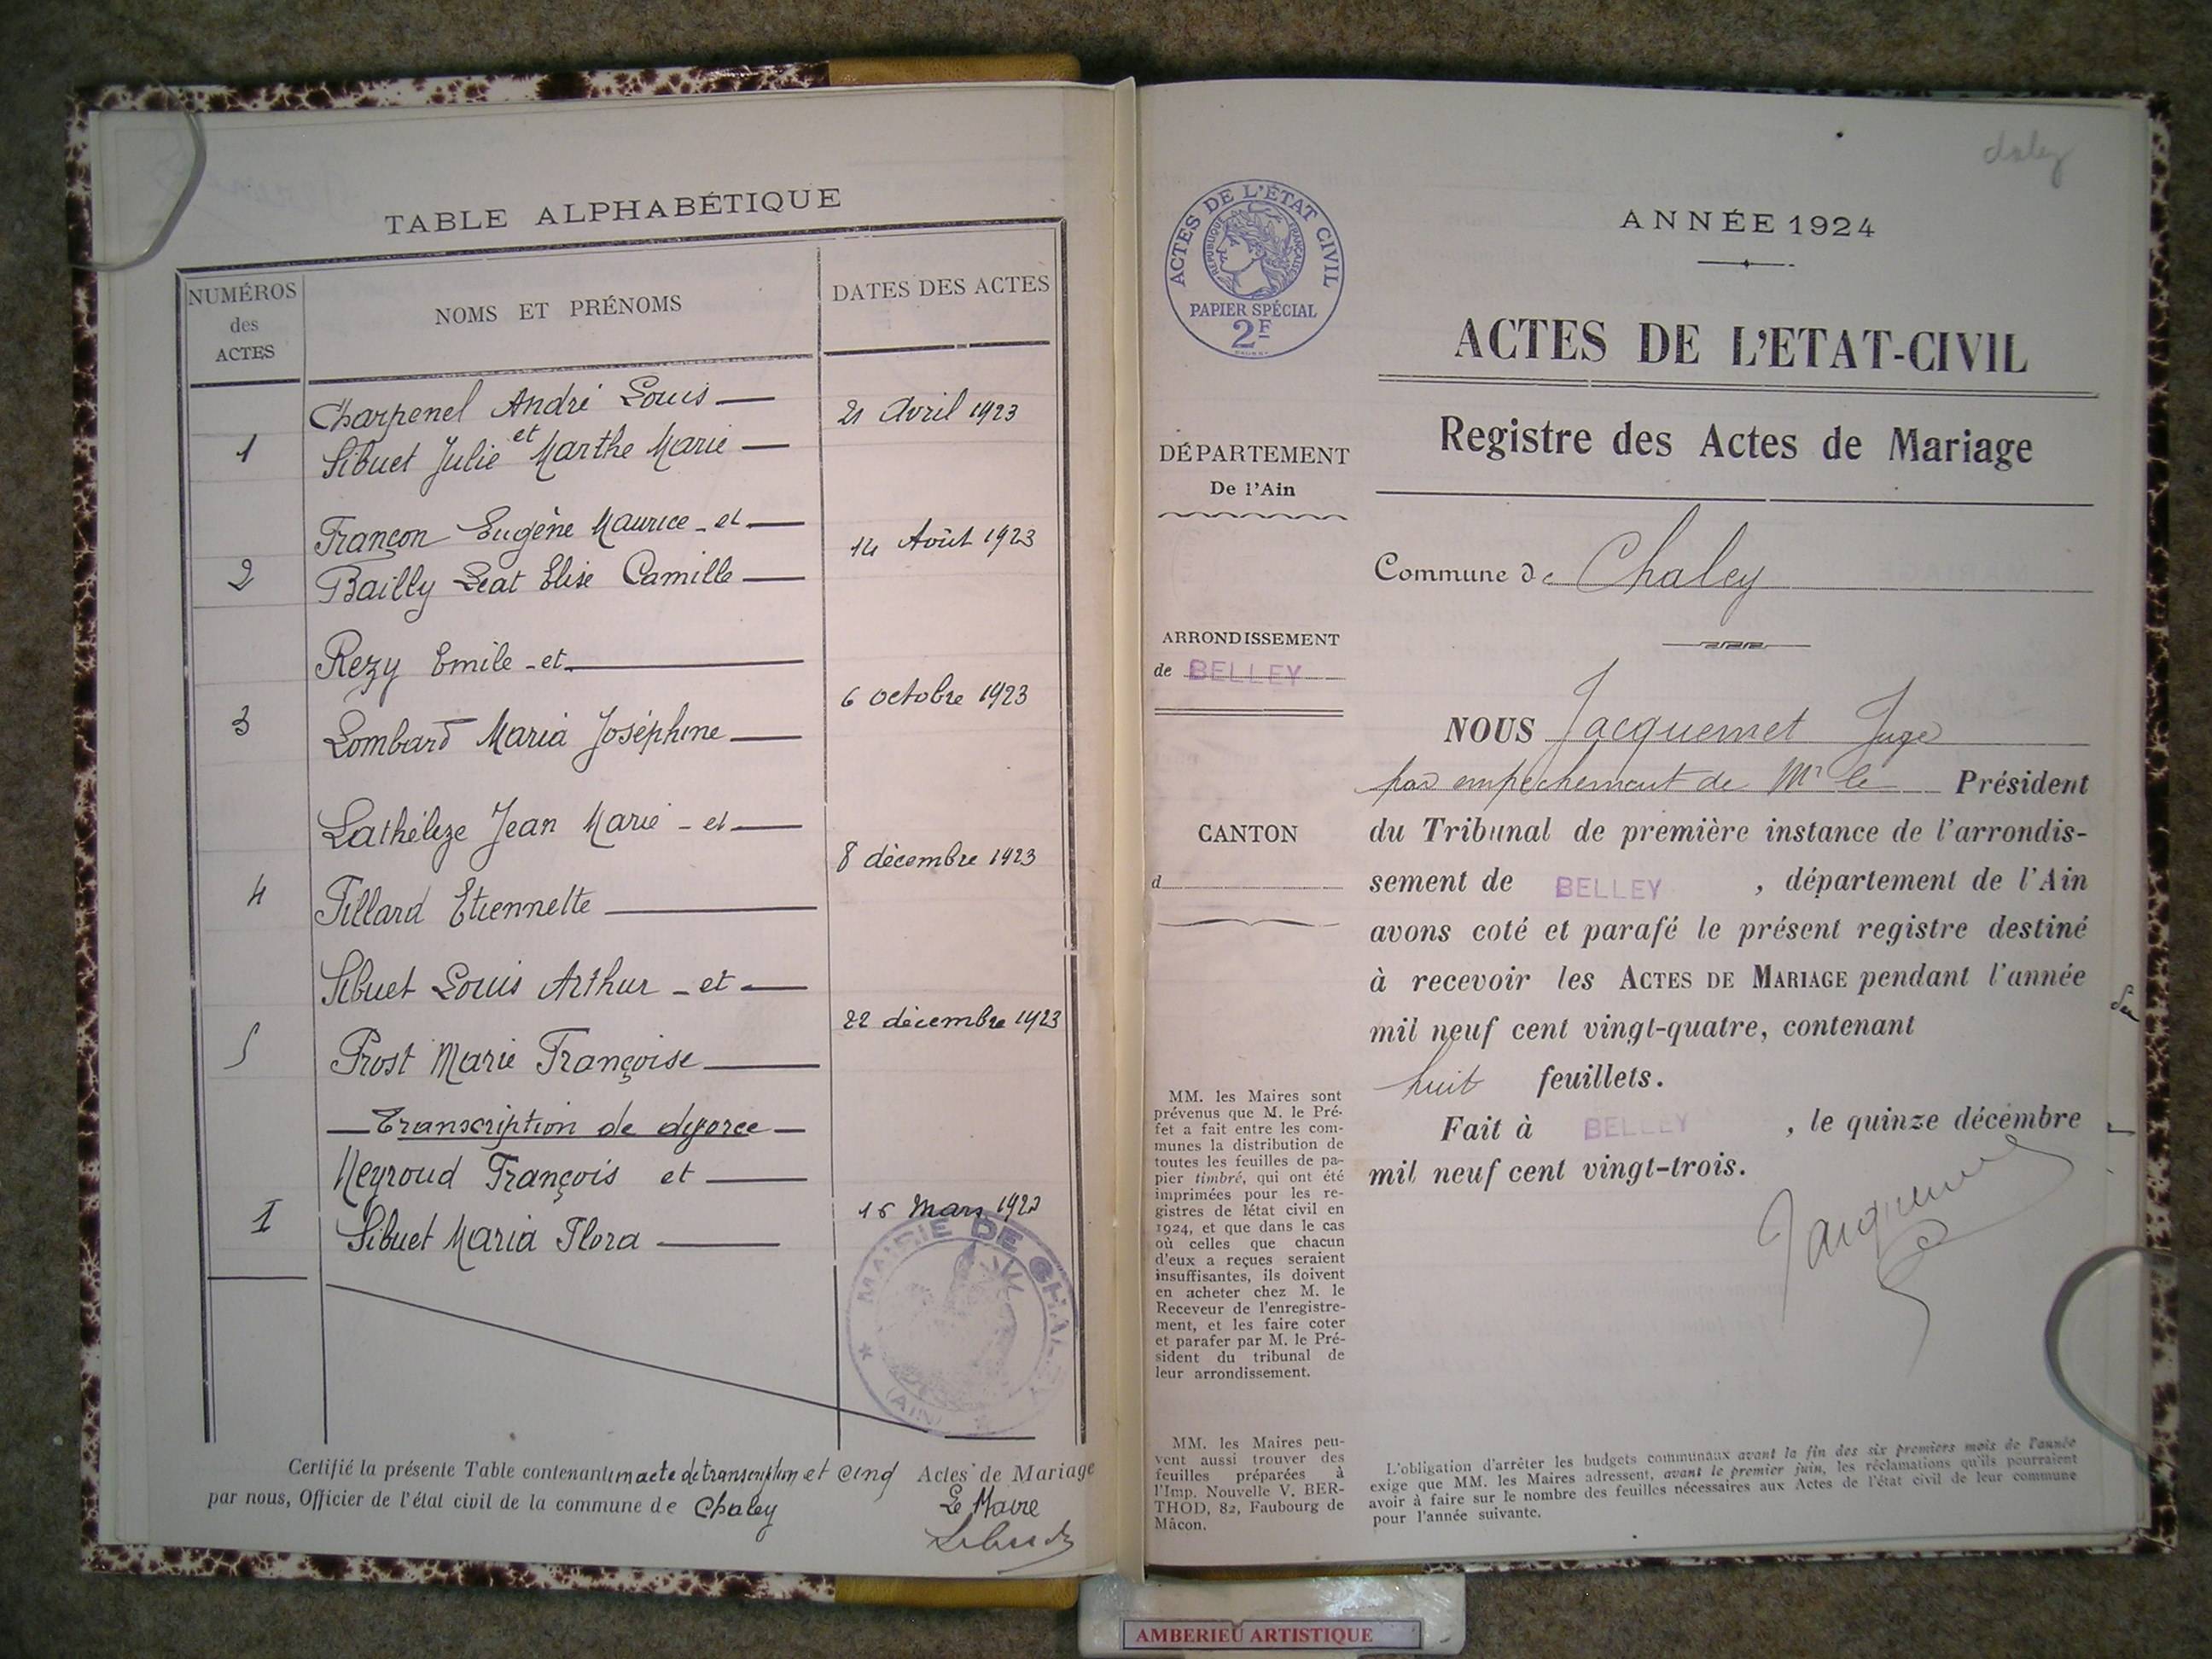 TABLE ALPHABÉTIQUE
NUMÉROS
des
ACTES
NOMS ET PRÉNOMS
DATES DES ACTES
Charpenel André Louis
et
1
Sibuet Julie Marthe Marie
21 Avril 1923
Françon Eugène Maurice - et
2
Bailly Leat Elise Camille
14 Août 1923
Rezy Emile - et
3
Lombard Maria Joséphine
6 octobre 1923
Lathélize Jean Marie - et
4
Tillard Etiennette
8 décembre 1923
Sibuet Louis Arthur - et
5
Prost Marie Françoise
22 décembre 1923
Transcription de divorce
Neyroud François et
I
Sibuet Maria Flora
Mars
MAIRIE DE CHALEY
(AIN)
Certifié la présente Table contenant un acte de transcription et cinq Actes de Mariage
par nous, Officier de l'état civil de la commune de Chaley
Le Maire
Sibuet
ACTES DE L'ÉTAT CIVIL
RÉPUBLIQUE FRANÇAISE
PAPIER SPÉCIAL
2F
DÉPARTEMENT
De l'Ain
ARRONDISSEMENT
de BELLEY
CANTON
d
MM. les Maires sont
prévenus que M. le Pré-
fet a fait entre les com-
munes la distribution de
toutes les feuilles de pa-
pier timbré, qui ont été
imprimées pour les re-
gistres de l'état civil en
1924, et que dans le cas
où celles que chacun
d'eux a reçues seraient
insuffisantes, ils doivent
en acheter chez M. le
Receveur de l'enregistre-
ment, et les faire coter
et parafer par M. le Pré-
sident du tribunal de
leur arrondissement.
MM. les Maires peu-
vent aussi trouver des
feuilles préparées à
l'Imp. Nouvelle V. BER-
THOD, 82, Faubourg de
Mâcon.
ANNÉE 1924
ACTES DE L'ETAT-CIVIL
Registre des Actes de Mariage
Commune de Chaley
NOUS Jacquemet Juge
par empêchement de Mr le Président
du Tribunal de première instance de l'arrondis-
sement de BELLEY , département de l'Ain
avons coté et parafé le présent registre destiné
à recevoir les ACTES DE MARIAGE pendant l'année
mil neuf cent vingt-quatre, contenant
huit feuillets.
Fait à BELLEY , le quinze décembre
mil neuf cent vingt-trois.
Jacquemet
L'obligation d'arrêter les budgets communaux avant la fin des six premiers mois de l'année
exige que MM. les Maires adressent, avant le premier juin, les réclamations qu'ils pourraient
avoir à faire sur le nombre des feuilles nécessaires aux Actes de l'état civil de leur commune
pour l'année suivante.
AMBERIEU ARTISTIQUE